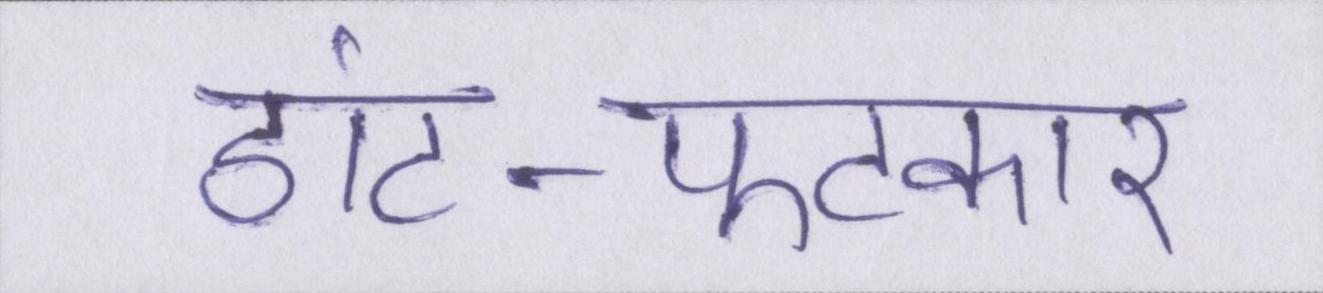 डांट-फटकार